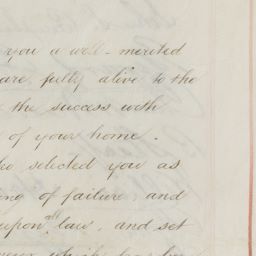 you a well-merited
are, fully alive to the
the success with
of your home.
selected you as
ing of failure, and
upon all law, and set
which